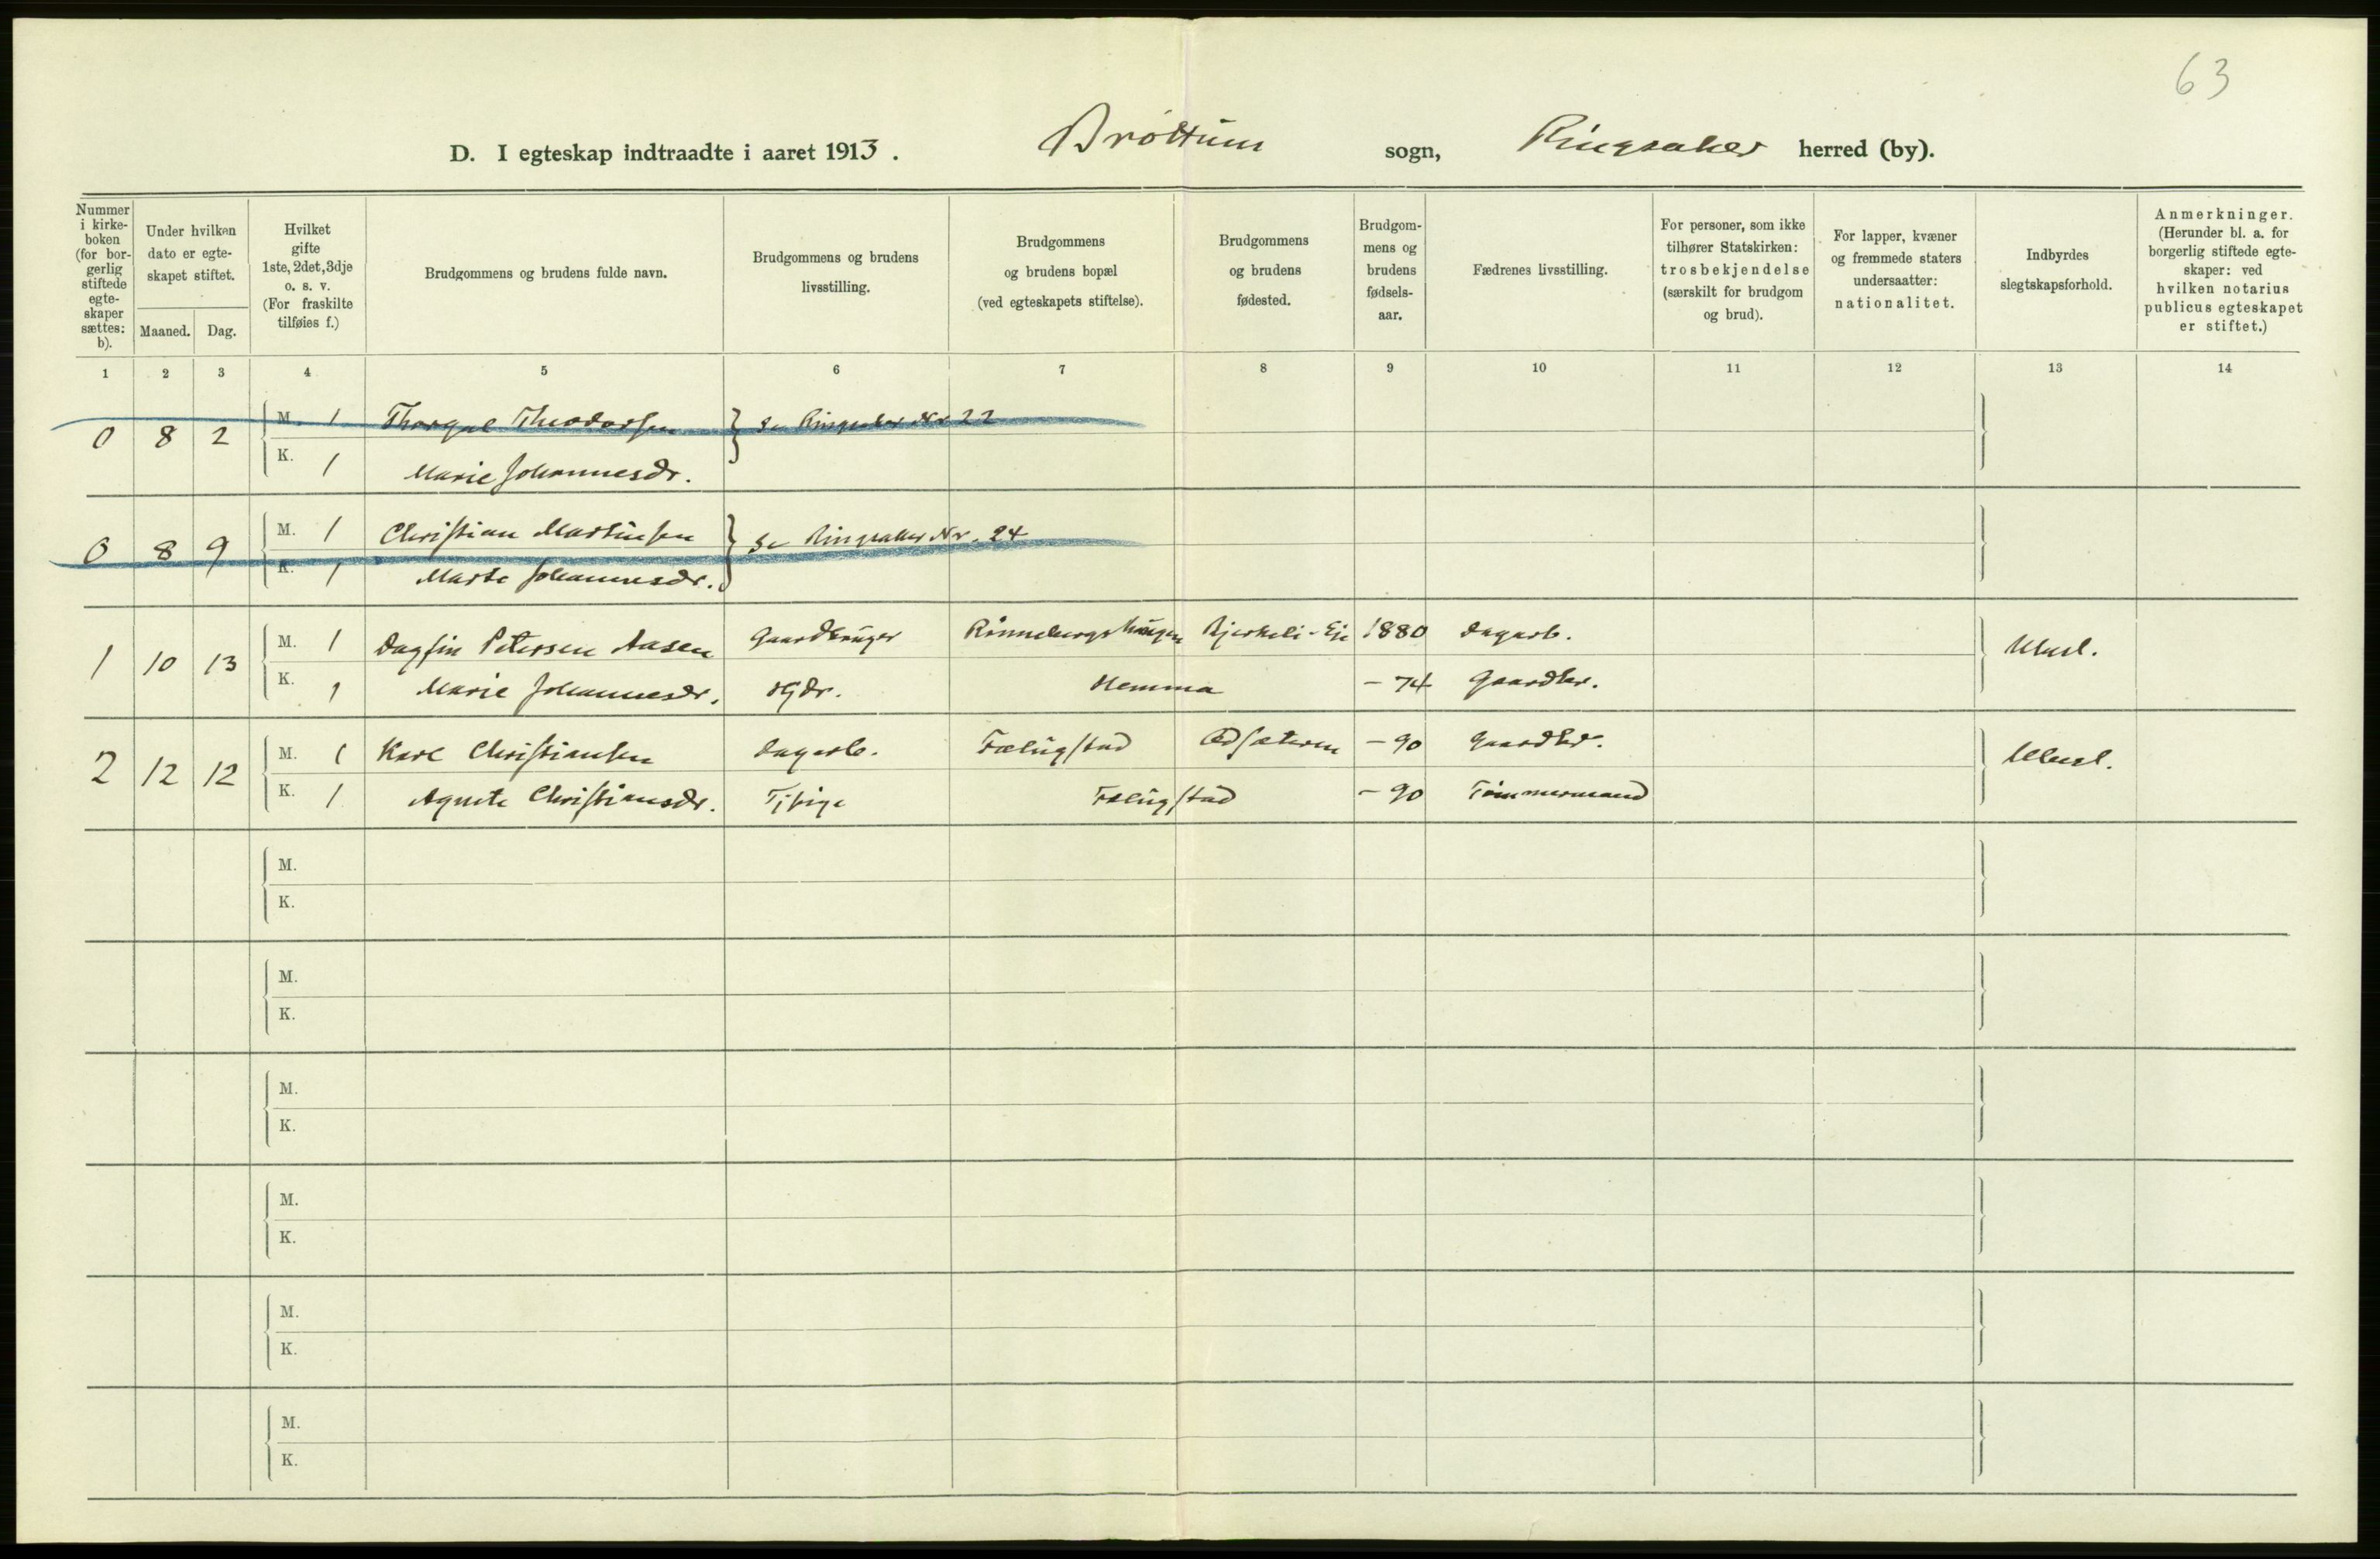 63
D. I egteskap indtraadte i aaret 1913. Brøttum sogn, Ringsaker herred (by).
Nummer i kirke-boken (for bor-gerlig stiftede egte-skaper sættes: b).
Under hvilken dato er egte-skapet stiftet.
Maaned. Dag.
Hvilket gifte 1ste, 2det, 3dje o. s. v. (For fraskilte tilføies f.)
Brudgommens og brudens fulde navn.
Brudgommens og brudens livsstilling.
Brudgommens og brudens bopæl (ved egteskapets stiftelse).
Brudgommens og brudens fødested.
Brudgom-mens og brudens fødsels-aar.
Fædrenes livsstilling.
For personer, som ikke tilhører Statskirken: trosbekjendelse (særskilt for brudgom og brud).
For lapper, kvæner og fremmede staters undersaatter: nationalitet.
Indbyrdes slegtskapsforhold.
Anmerkninger. (Herunder bl. a. for borgerlig stiftede egte-skaper: ved hvilken notarius publicus egteskapet er stiftet.)
1 2 3 4 5 6 7 8 9 10 11 12 13 14
0 8 2 M. 1 Theodorsen } Se Ringsaker Nr 22
K. 1 Marie Johannesdr.
0 8 9 M. 1 Christian Martinsen } Se Ringsaker Nr. 24
K. 1 Marte Johannesdr.
1 10 13 M. 1 Dagfin Petersen Aasen Gaardbruger Rønnebergshaugen Bjerkeli-Eie 1880 Dagarb. Ubesl.
K. 1 Marie Johannesdr. Gdr. Hemma - 74 Gaardbr.
2 12 12 M. 1 Karl Christiansen Dagarb. Fælugstad - 90 Gaardbr. Ubesl.
K. 1 Agnete Christiansdr. Tjpige Fælugstad - 90 Tømmermand
M.
K.
M.
K.
M.
K.
M.
K.
M.
K.
M.
K.